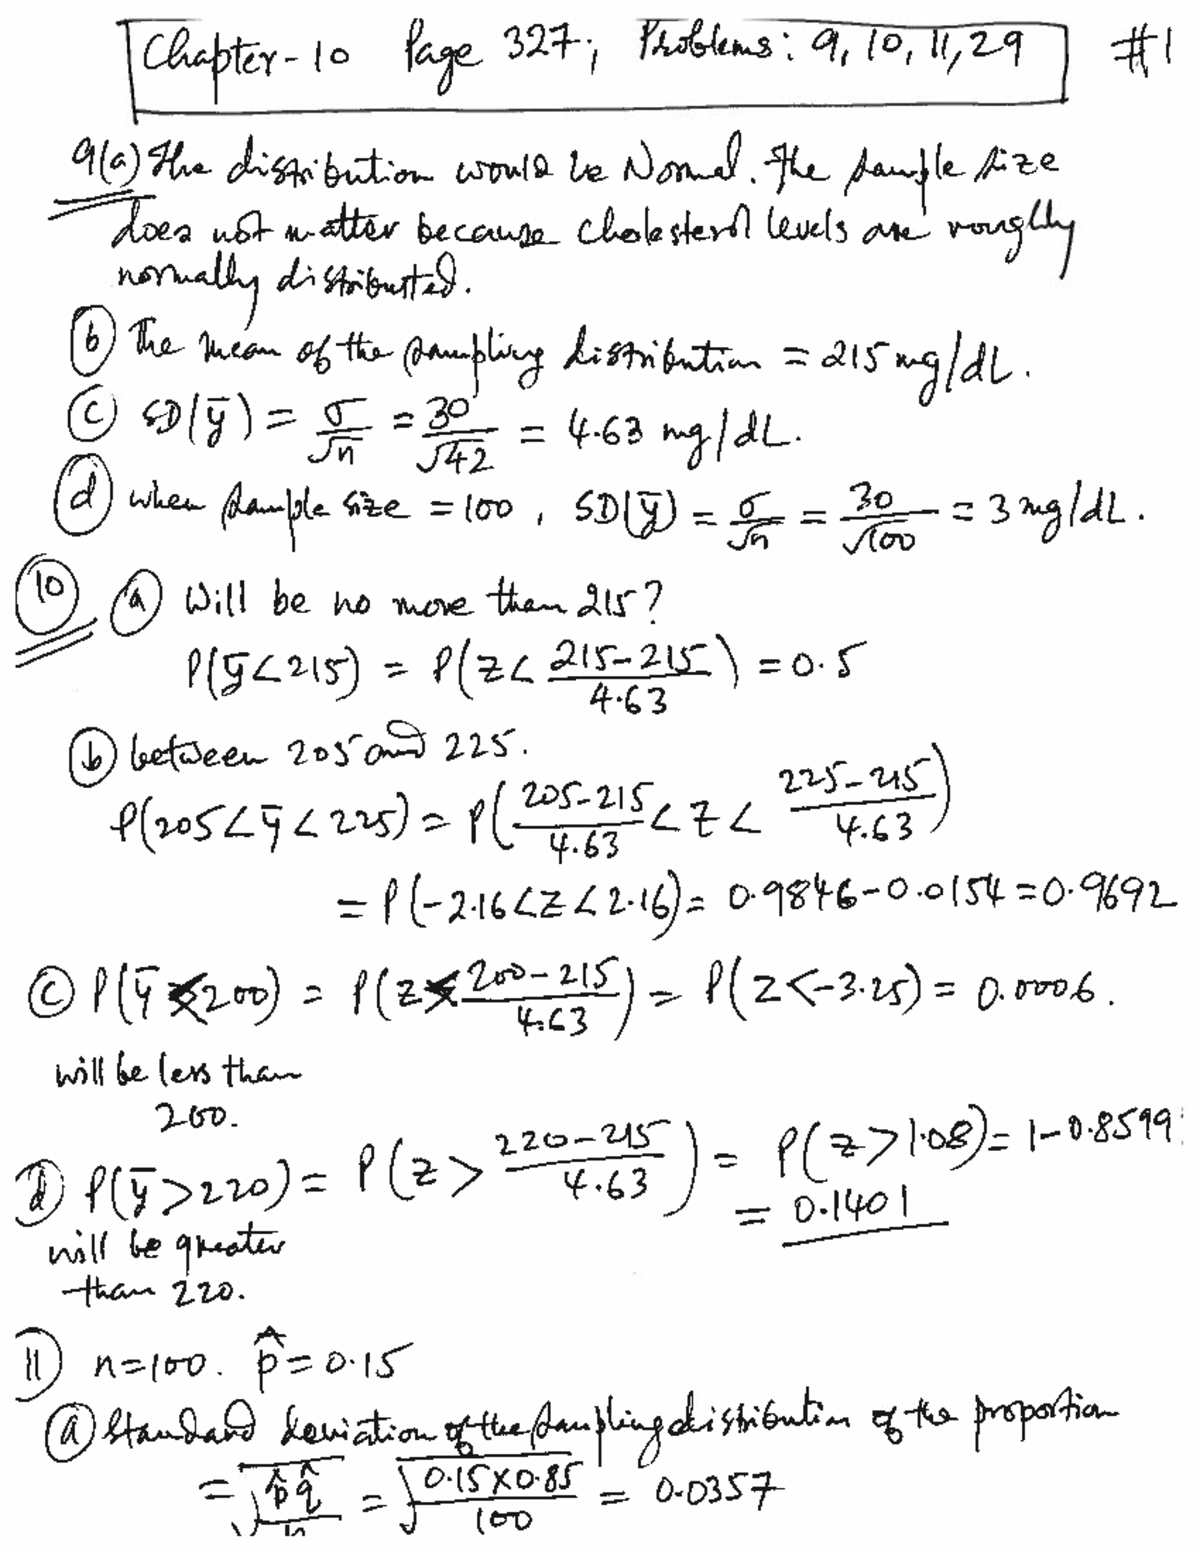 Chapter-10 Page 327; Problems: 9, 10, 11, 29 #1
9(a) The distribution would be Normal. The sample size
does not matter because cholesterol levels are roughlly
normally distributted.
(b) The mean of the sampling distribution = 215 mg/dL.
(c) SD(ȳ) = σ/√n = 30/√42 = 4.63 mg/dL.
(d) when sample size = 100, SD(ȳ) = σ/√n = 30/√100 = 3 mg/dL.
(10) (a) Will be no more than 215?
P(ȳ<215) = P(z< (215-215)/4.63) = 0.5
(b) between 205 and 225.
P(205<ȳ<225) = P((205-215)/4.63 < Z < (225-215)/4.63)
= P(-2.16<Z<2.16) = 0.9846-0.0154 = 0.9692
(c) P(ȳ<200) = P(z< (200-215)/4.63) = P(z<-3.25) = 0.0006.
will be less than
200.
(d) P(ȳ>220) = P(z> (220-215)/4.63) = P(z>1.08) = 1-0.8599
= 0.1401
will be greater
than 220.
(11) n=100. p̂=0.15
(a) Standard deviation of the sampling distribution of the proportion
= √(p̂q̂/n) = √(0.15×0.85/100) = 0.0357